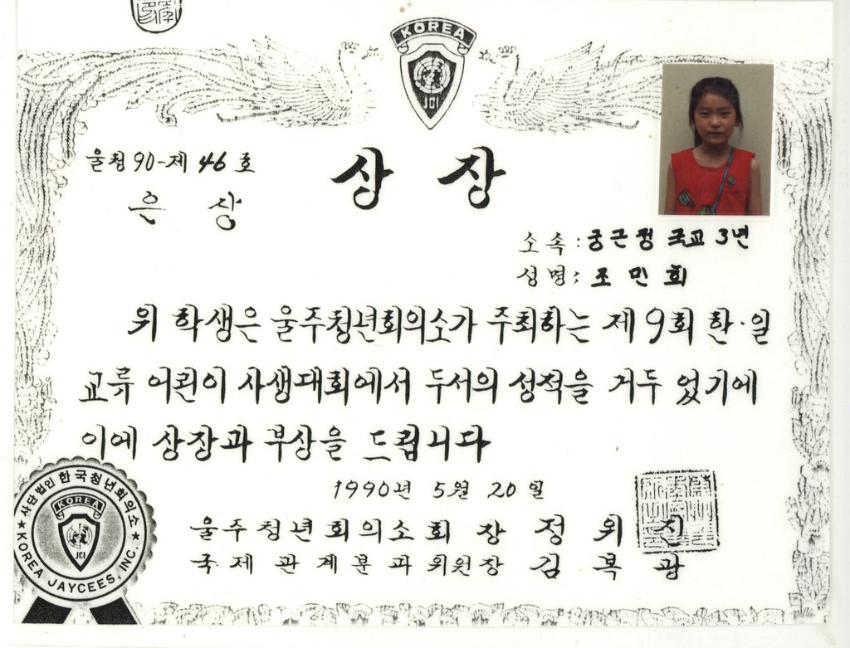 KOREA
JCI
울청90-제46호
상 장
은 상
소속:궁근정 국교 3년
성명: 조민희
위 학생은 울주청년회의소가 주최하는 제9회 한·일
교류 어린이 사생대회에서 두서의 성적을 거두 었기에
이에 상장과 부상을 드립니다
1990년 5월 20일
울주청년회의소회장 정 위 진
국제관계분과위원장 김 복 광
사단법인 한국청년회의소
KOREA
JCI
KOREA JAYCEES, INC.